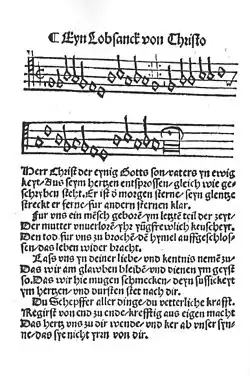 ¶ Eyn Lobsanck von Christo
Herr Christ der eynig Gotts son / vaters yn ewig
keyt / Aus seym hertzen entsprossen / gleich wie ge-
schryben steht. Er ist ō morgen sterne / seyn glentze
streckt er ferne / fur andern sternen klar.
Fur vns ein mēsch geborē / ym letztē teil der zeyt /
Der mutter vnuerlorē / yhr yügfrewlich keuscheyt.
Den tod fur vns zu brochē / dē hymel auffgeschlos-
sen / das leben wider bracht.
Lass vns yn deiner liebe / vnd kentnis nemē zu /
Das wir am glawben bleibē / vnd dienen ym geyst
so. Das wir hie mugen schmecken / deyn sussickeyt
ym hertzen / vnd dursten stet nach dir.
Du Schepffer aller dinge / du vetterliche krafft.
Regirst von end zu ende / krefftig aus eigen macht
Das hertz vns zu dir wende / vnd ker ab vnser syn-
ne / das sye nicht yrrn von dir.